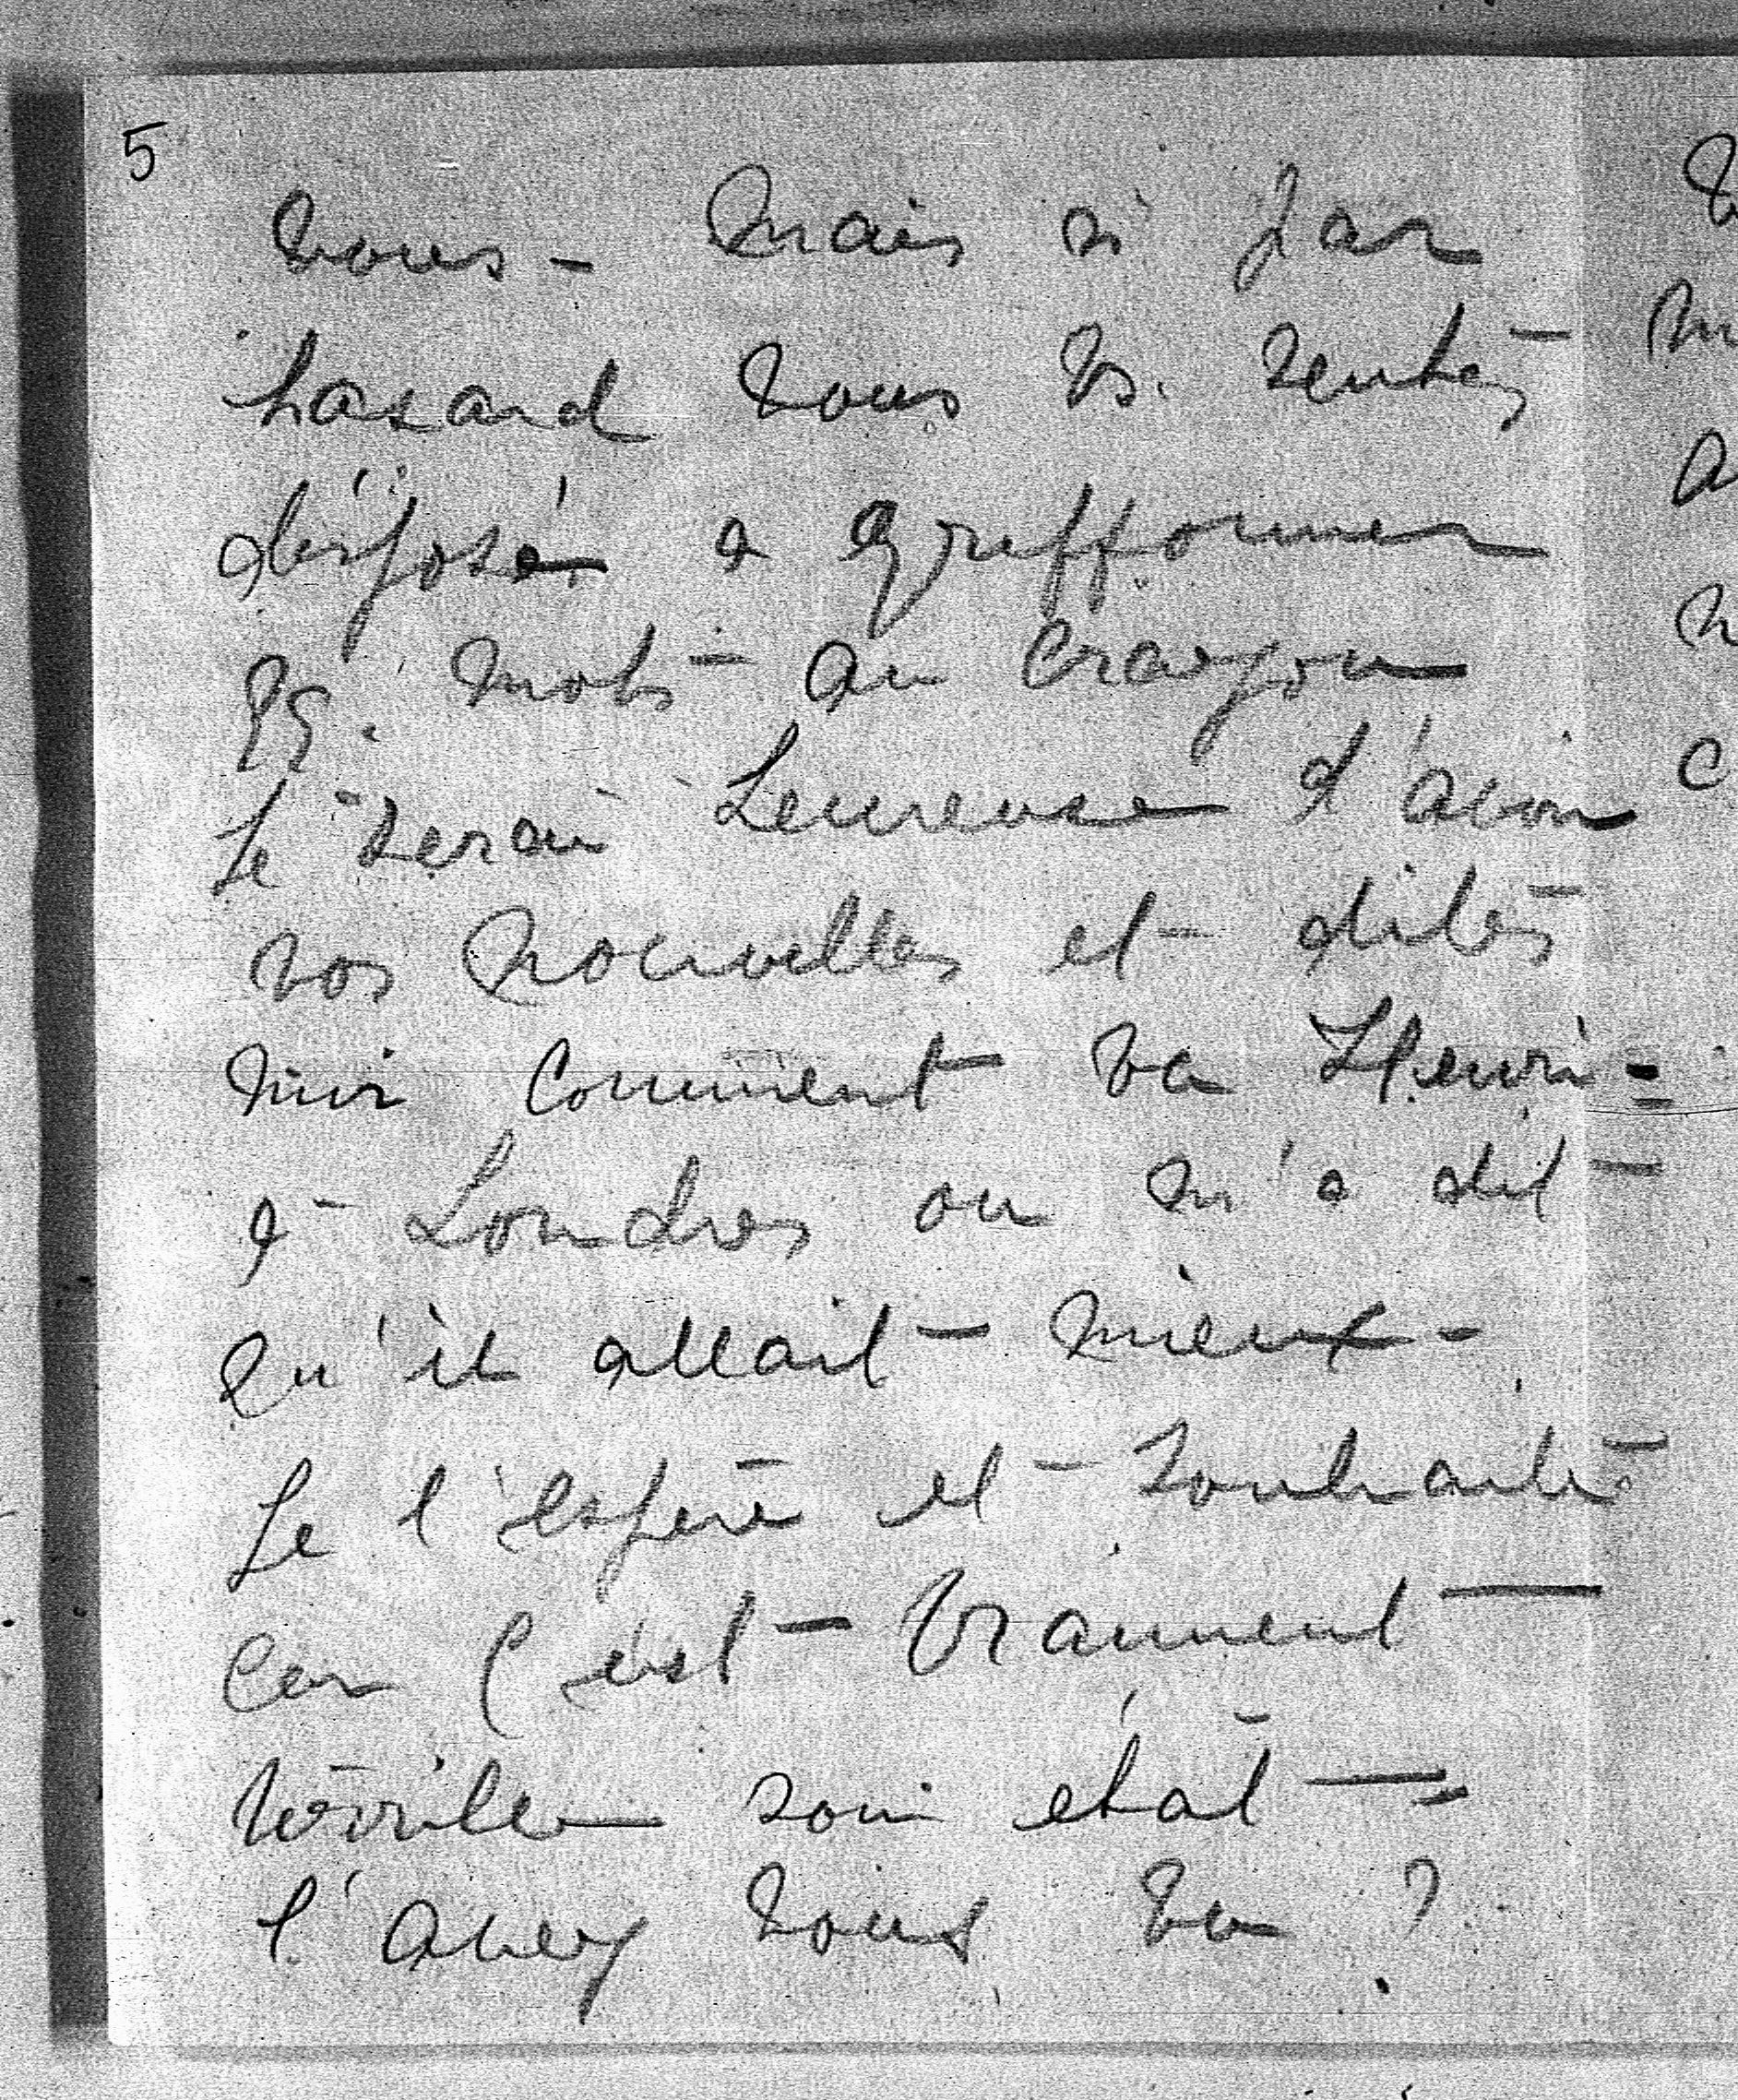 5
vous - Mais si par
hasard vous vs. sentes
disposé a griffonner
qq. mots au crayon
Je serai heureuse d'avoir
vos nouvelles et dites
moi comment va Henri =
à Londres on m'a dit
qu'il allait mieux -
Je l'espère et souhaite
Car c'est vraiment
terrible son etat -
l'avez vous vu ?